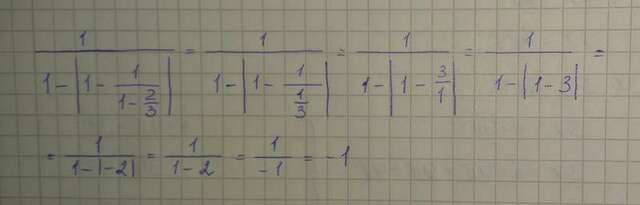 \frac{1}{1-\left|1-\frac{1}{1-\frac{2}{3}}\right|} = \frac{1}{1-\left|1-\frac{1}{\frac{1}{3}}\right|} = \frac{1}{1-\left|1-\frac{3}{1}\right|} = \frac{1}{1-\left|1-3\right|} =
= \frac{1}{1-|-2|} = \frac{1}{1-2} = \frac{1}{-1} = -1